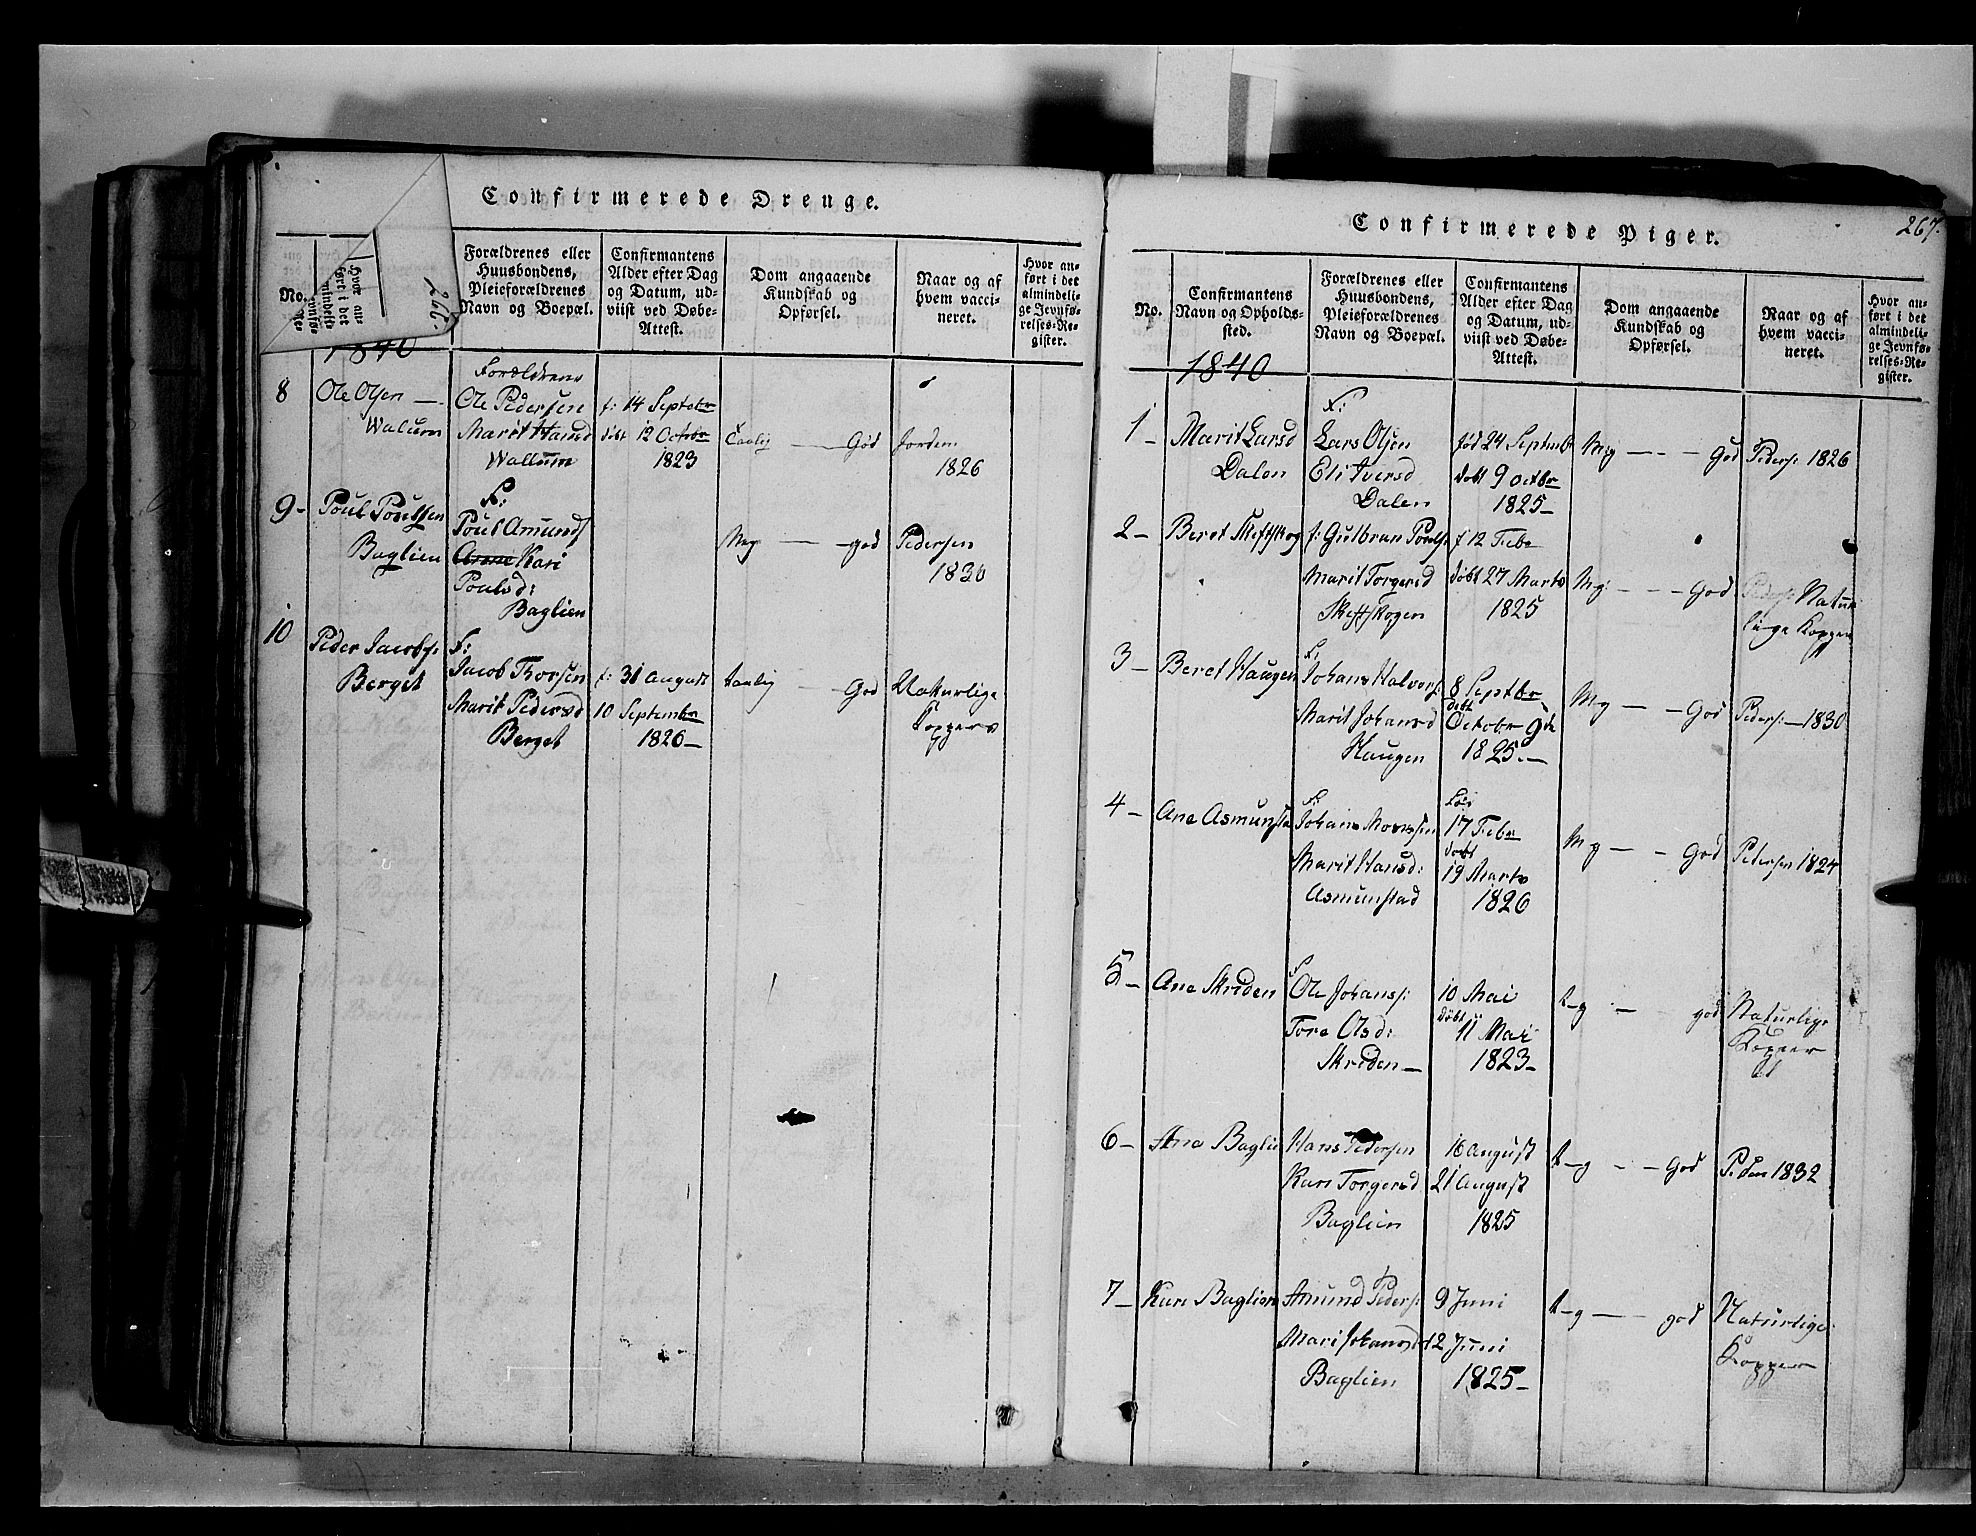 Confirmerede Drenge.
266.
No.
Hvor an-
ført i det
almindelige
Jevnfø-
Forældrenes eller
Huusbondens,
Pleieforældrenes
Navn og Boepæl.
Confirmantens
Alder efter Dag
og Datum, ud-
viist ved Døbe-
Attest.
Dom angaaende
Kundskab og
Opførsel.
Naar og af
hvem vacci-
neret.
Hvor an-
ført i det
almindeli-
ge Jevnfø-
relses-Re-
gister.
1840
8
Ole Olsen —
Walum
Forældrene
Ole Pedersen
Marit Hansd
Wallum
f: 14 Septebr
døbt 12 Octobr
1823
Taalig — God
Jordem
1826
9 -
Poul Poulsen
Baglien
F:
Poul Amunds
Kari
Poulsd:
Baglien
Mg — god
Pedersen
1830
10
Peder Jacobs:
Berget
F:
Jacob Thorsen
Marit Pedersd
Berget
f: 31 August
10 Septembr
1826 —
taalig — God
Naturlige
Kopper
Confirmerede Piger.
267.
No.
Confirmantens
Navn og Opholds-
sted.
Forældrenes eller
Huusbondens,
Pleieforældrenes
Navn og Boepæl.
Confirmantens
Alder efter Dag
og Datum, ud-
viist ved Døbe-
Attest.
Dom angaaende
Kundskab og
Opførsel.
Naar og af
hvem vacci-
neret.
Hvor an-
ført i det
almindeli-
ge Jevnfø-
relses-Re-
gister.
1840
1 -
Marit Larsd
Dalen
F:
Lars Olsen
Eli Iversd
Dalen
fød 24 Septembr
døbt 9 octbr
1825 —
Mg — — God
Peders: 1826
2 -
Beret Skiftskog
f: Gulbran Pouls:
Marit Torgersd
Skiftskogen
f 12 Febr
døbt 27 Marts
1825
Mg: — — God
Natur
lige Kopper
3 -
Beret Haugen
F:
Johans Halvors:
Marit Johansd
Haugen
8 Septbr
døbt
October 9de
1825. —
Mg — — God
Peders: — 1830
4 -
Ane Asmunsta
F:
Johans Monssen
Marit Hansd:
Asmunstad
17 Febr
døbt
19 Marts
1826
Mg — — God
Petersen 1824
5 -
Ane Skriden
F
Ole Johans:
Tore Olsd:
Skriden —
10 Mai
døbt
11 Mai
1823 —
t—g — god
Naturlige
Kopper
6 -
Ana Baglie
Hans Pedersen
Kari Torgersd
Baglien
16 August
21 August
1825
t—g — — God
Peders 1832
7 -
Kari Baglien
Amund Peders:
Mari Johansd
Baglien
9 Juni
12 Juni
1825 —
t—g — god
Naturlige
Kopper